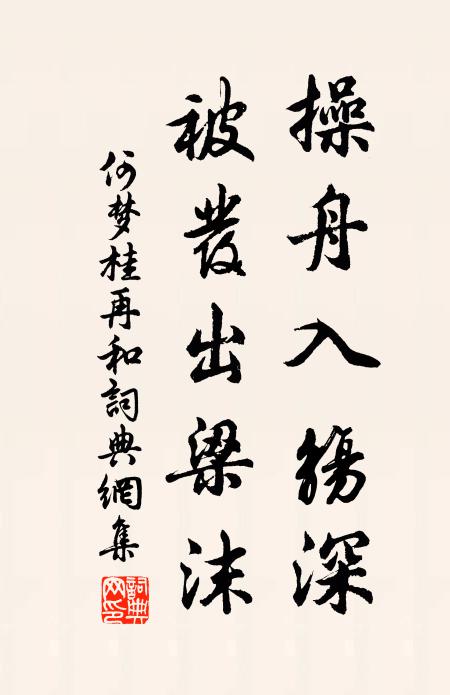 操舟入觴深
被發出梁沫
何梦桂再和詞典網集
詞典网印